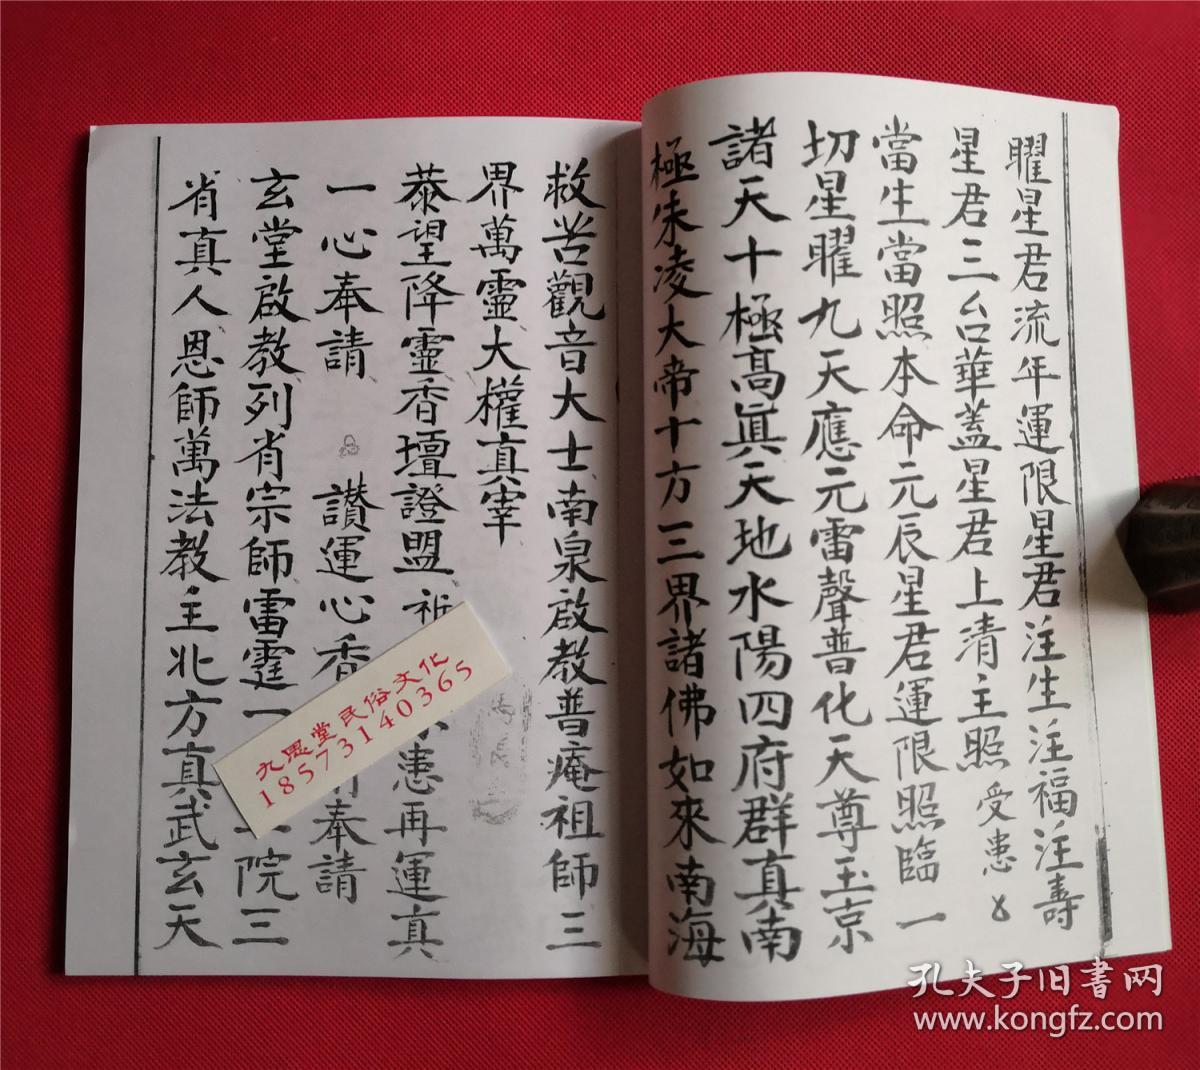 曜星君流年運限星君注生注福注壽
星君三台華蓋星君上清主照受患
當生當照本命元辰星君運限照臨一
切星曜九天應元雷聲普化天尊玉京
諸天十極高眞天地水陽四府群真南
極朱凌大帝十方三界諸佛如來南海
救苦觀音大士南泉啟教普庵祖師三
界萬靈大權真宰
恭望降靈香壇證盟 患再運真
一心奉請 讃運心香 奉請
玄堂啟教列省宗師雷霆一 院三
省真人恩師萬法教主北方真武玄天
九思堂民俗文化
18573140365
孔夫子旧書网
www.kongfz.com